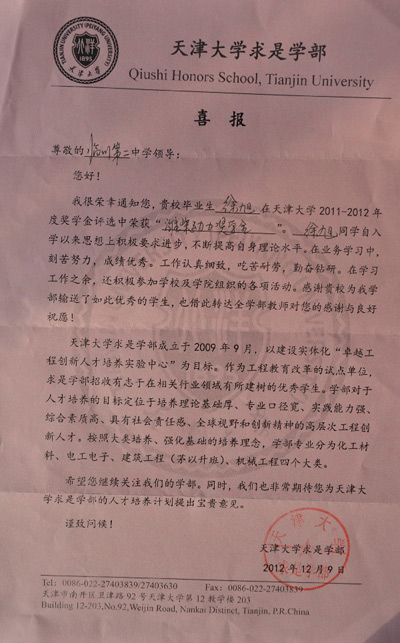 TIANJIN UNIVERSITY (PEIYANG UNIVERSITY)
1895
天津大学
天津大学求是学部
Qiushi Honors School, Tianjin University
喜 报
尊敬的 临川第二中学领导：
您好！
我很荣幸通知您，贵校毕业生 徐旭 在天津大学 2011-2012 年
度奖学金评选中荣获“潍柴动力奖学金”。徐旭同学自入
学以来思想上积极要求进步，不断提高自身理论水平。在业务学习中，
刻苦努力，成绩优秀。工作认真细致，吃苦耐劳，勤奋钻研。在学习
工作之余，还积极参加学校及学院组织的各项活动。感谢贵校为我学
部输送了如此优秀的学生，也借此转达全学部教师对您的感谢与良好
祝愿！
天津大学求是学部成立于 2009 年 9 月，以建设实体化“卓越工
程创新人才培养实验中心”为目标。作为工程教育改革的试点单位，
求是学部招收有志于在相关行业领域有所建树的优秀学生。学部对于
人才培养的目标定位于培养理论基础厚、专业口径宽、实践能力强、
综合素质高、具有社会责任感、全球视野和创新精神的高层次工程创
新人才。按照大类培养、强化基础的培养理念，学部专业分为化工材
料、电工电子、建筑工程（茅以升班）、机械工程四个大类。
希望您继续关注我们的学部。同时，我们也非常期待您为天津大
学求是学部的人才培养计划提出宝贵意见。
谨致问候！
天津大学求是学部
2012 年 12 月 9 日
天津大学
Tel: 0086-022-27403839/27403630 Fax: 0086-022-27403839
天津市南开区卫津路 92 号天津大学第 12 教学楼 203
Building 12-203,No.92,Weijin Road, Nankai Distinct, Tianjin, P.R.China